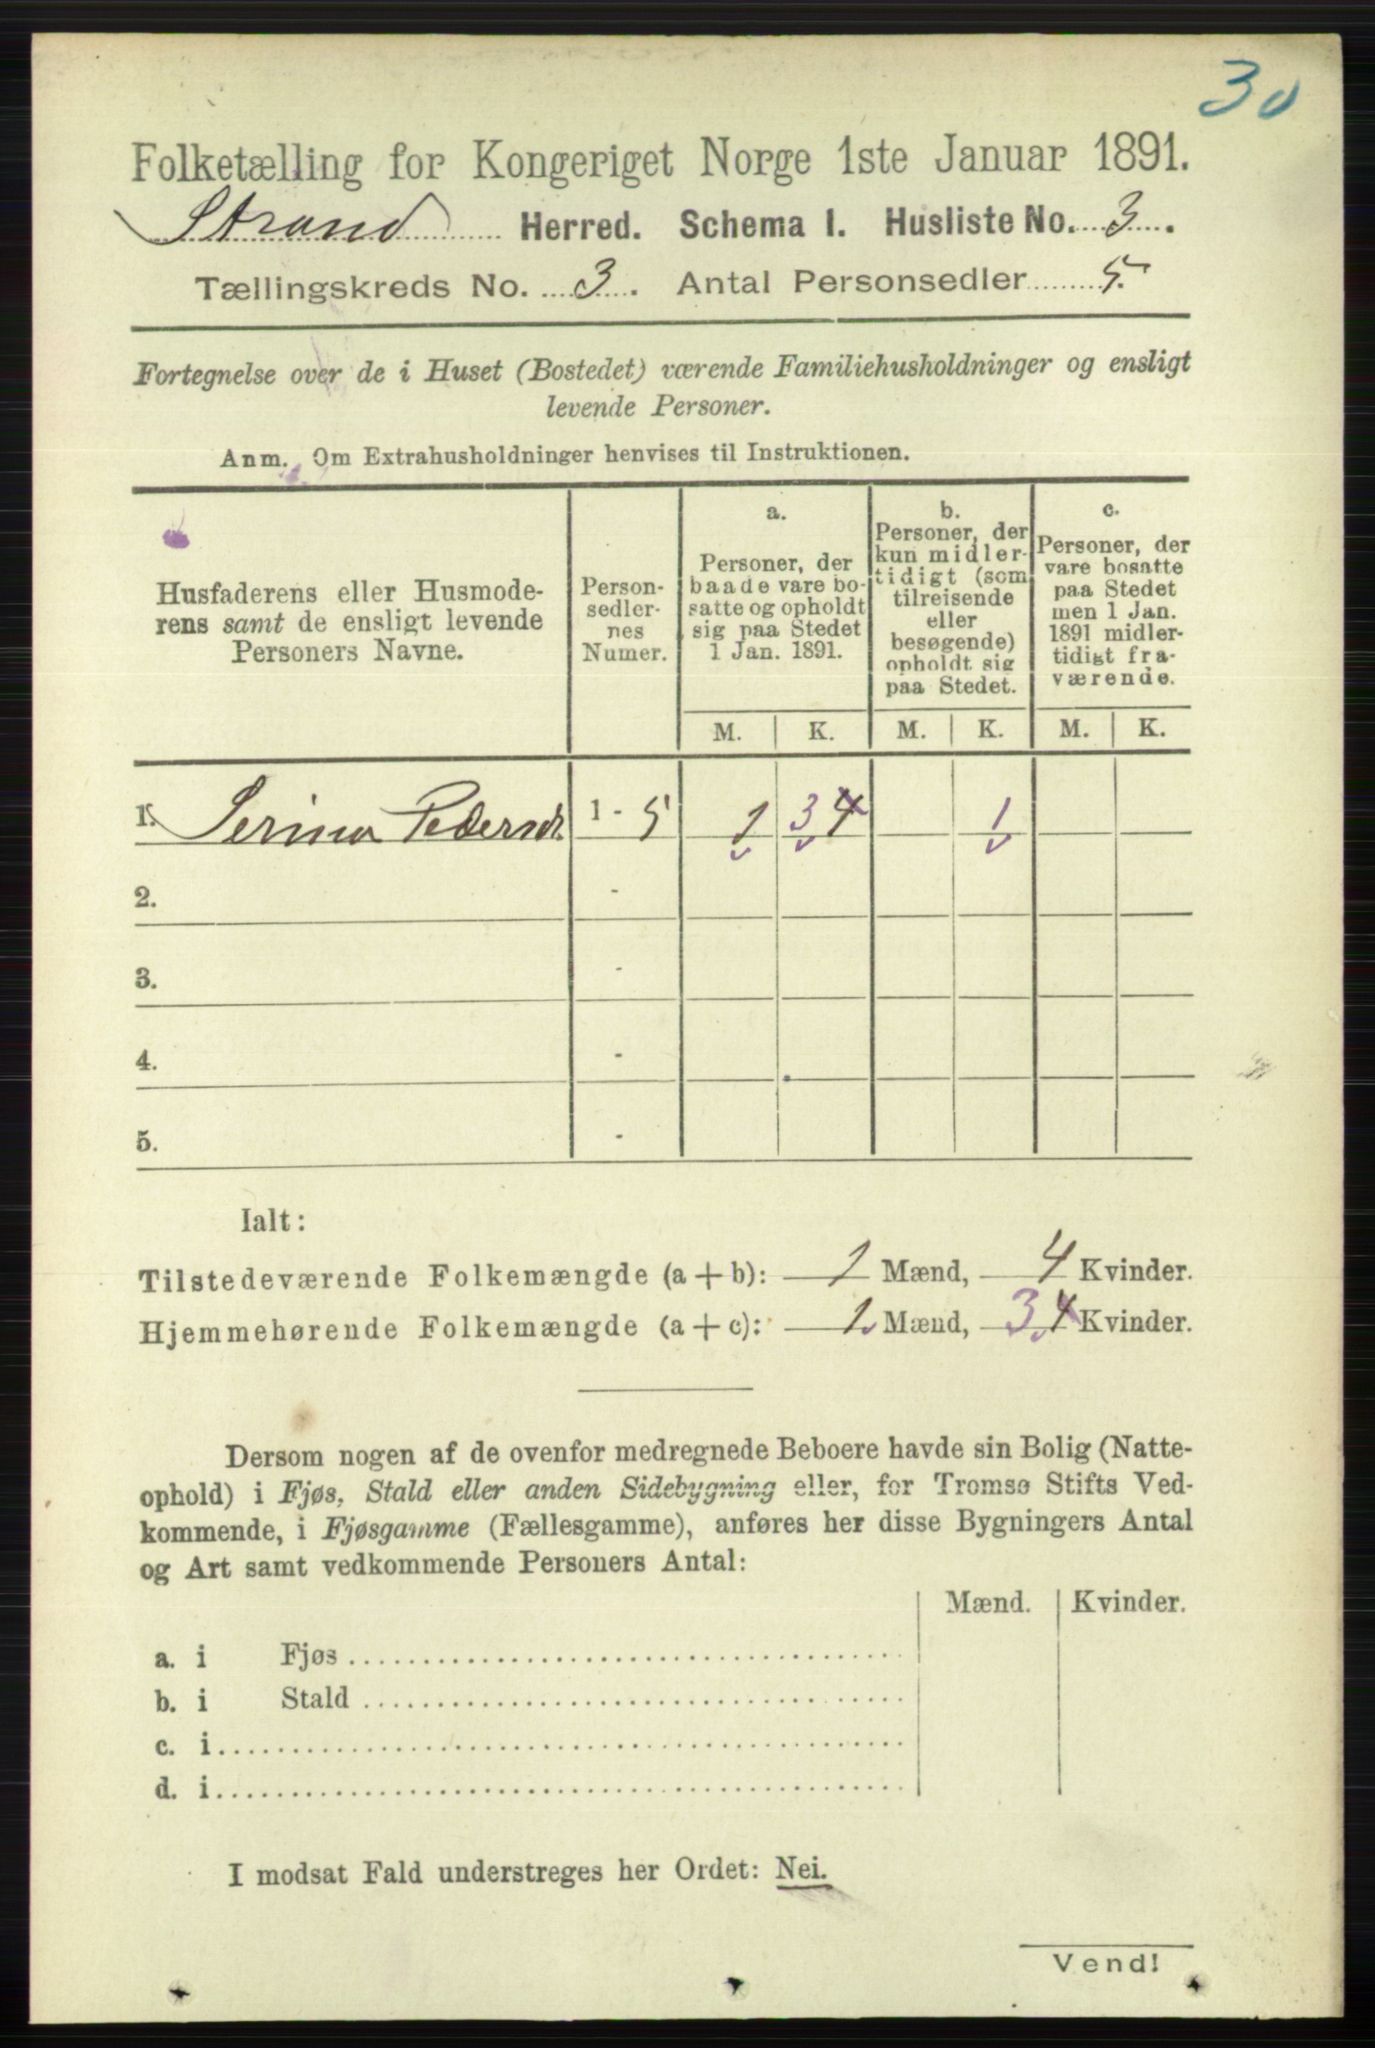 30
Folketælling for Kongeriget Norge 1ste Januar 1891.
Strand Herred. Schema I. Husliste No. 3.
Tællingskreds No. 3. Antal Personsedler 5.
Fortegnelse over de i Huset (Bostedet) værende Familiehusholdninger og ensligt
levende Personer.
Anm. Om Extrahusholdninger henvises til Instruktionen.
Husfaderens eller Husmode-
rens samt de ensligt levende
Personers Navne.
Person-
sedler-
nes
Numer.
a.
Personer, der
baade vare bo-
satte og opholdt
sig paa Stedet
1 Jan. 1891.
b.
Personer, der
kun midler-
tidigt (som
tilreisende
eller
besøgende)
opholdt sig
paa Stedet.
c.
Personer, der
vare bosatte
paa Stedet
men 1 Jan.
1891 midler-
tidigt fra-
værende.
M. K. M. K. M. K.
1. Serina Pedersdr. 1 - 5 1 3 4 1
2. -
3. -
4. -
5. -
Ialt:
Tilstedeværende Folkemængde (a + b): 1 Mænd, 4 Kvinder.
Hjemmehørende Folkemængde (a + c): 1 Mænd, 3 4 Kvinder.
Dersom nogen af de ovenfor medregnede Beboere havde sin Bolig (Natte-
ophold) i Fjøs, Stald eller anden Sidebygning eller, for Tromsø Stifts Ved-
kommende, i Fjøsgamme (Fællesgamme), anføres her disse Bygningers Antal
og Art samt vedkommende Personers Antal:
Mænd. Kvinder.
a. i Fjøs
b. i Stald
c. i
d. i
I modsat Fald understreges her Ordet: Nei.
Vend!